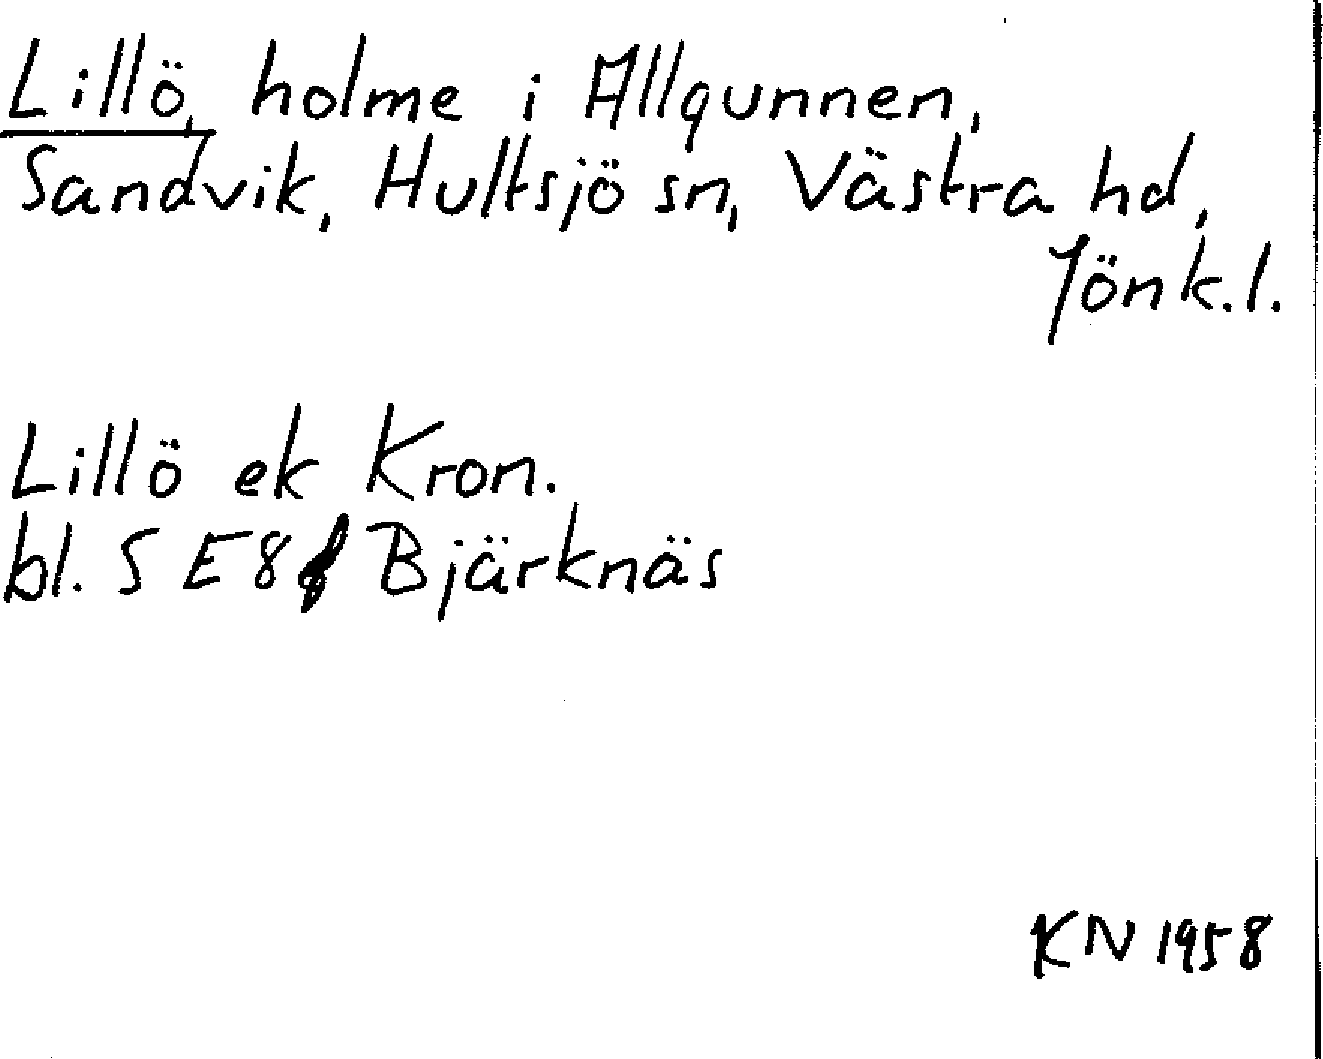 Lillö, holme i Allgunnen,
Sandvik, Hultsjö sn, Västra hd,
Jönk.l.
Lillö ek Kron.
bl. 5 E8f Bjärknäs
KN 1958